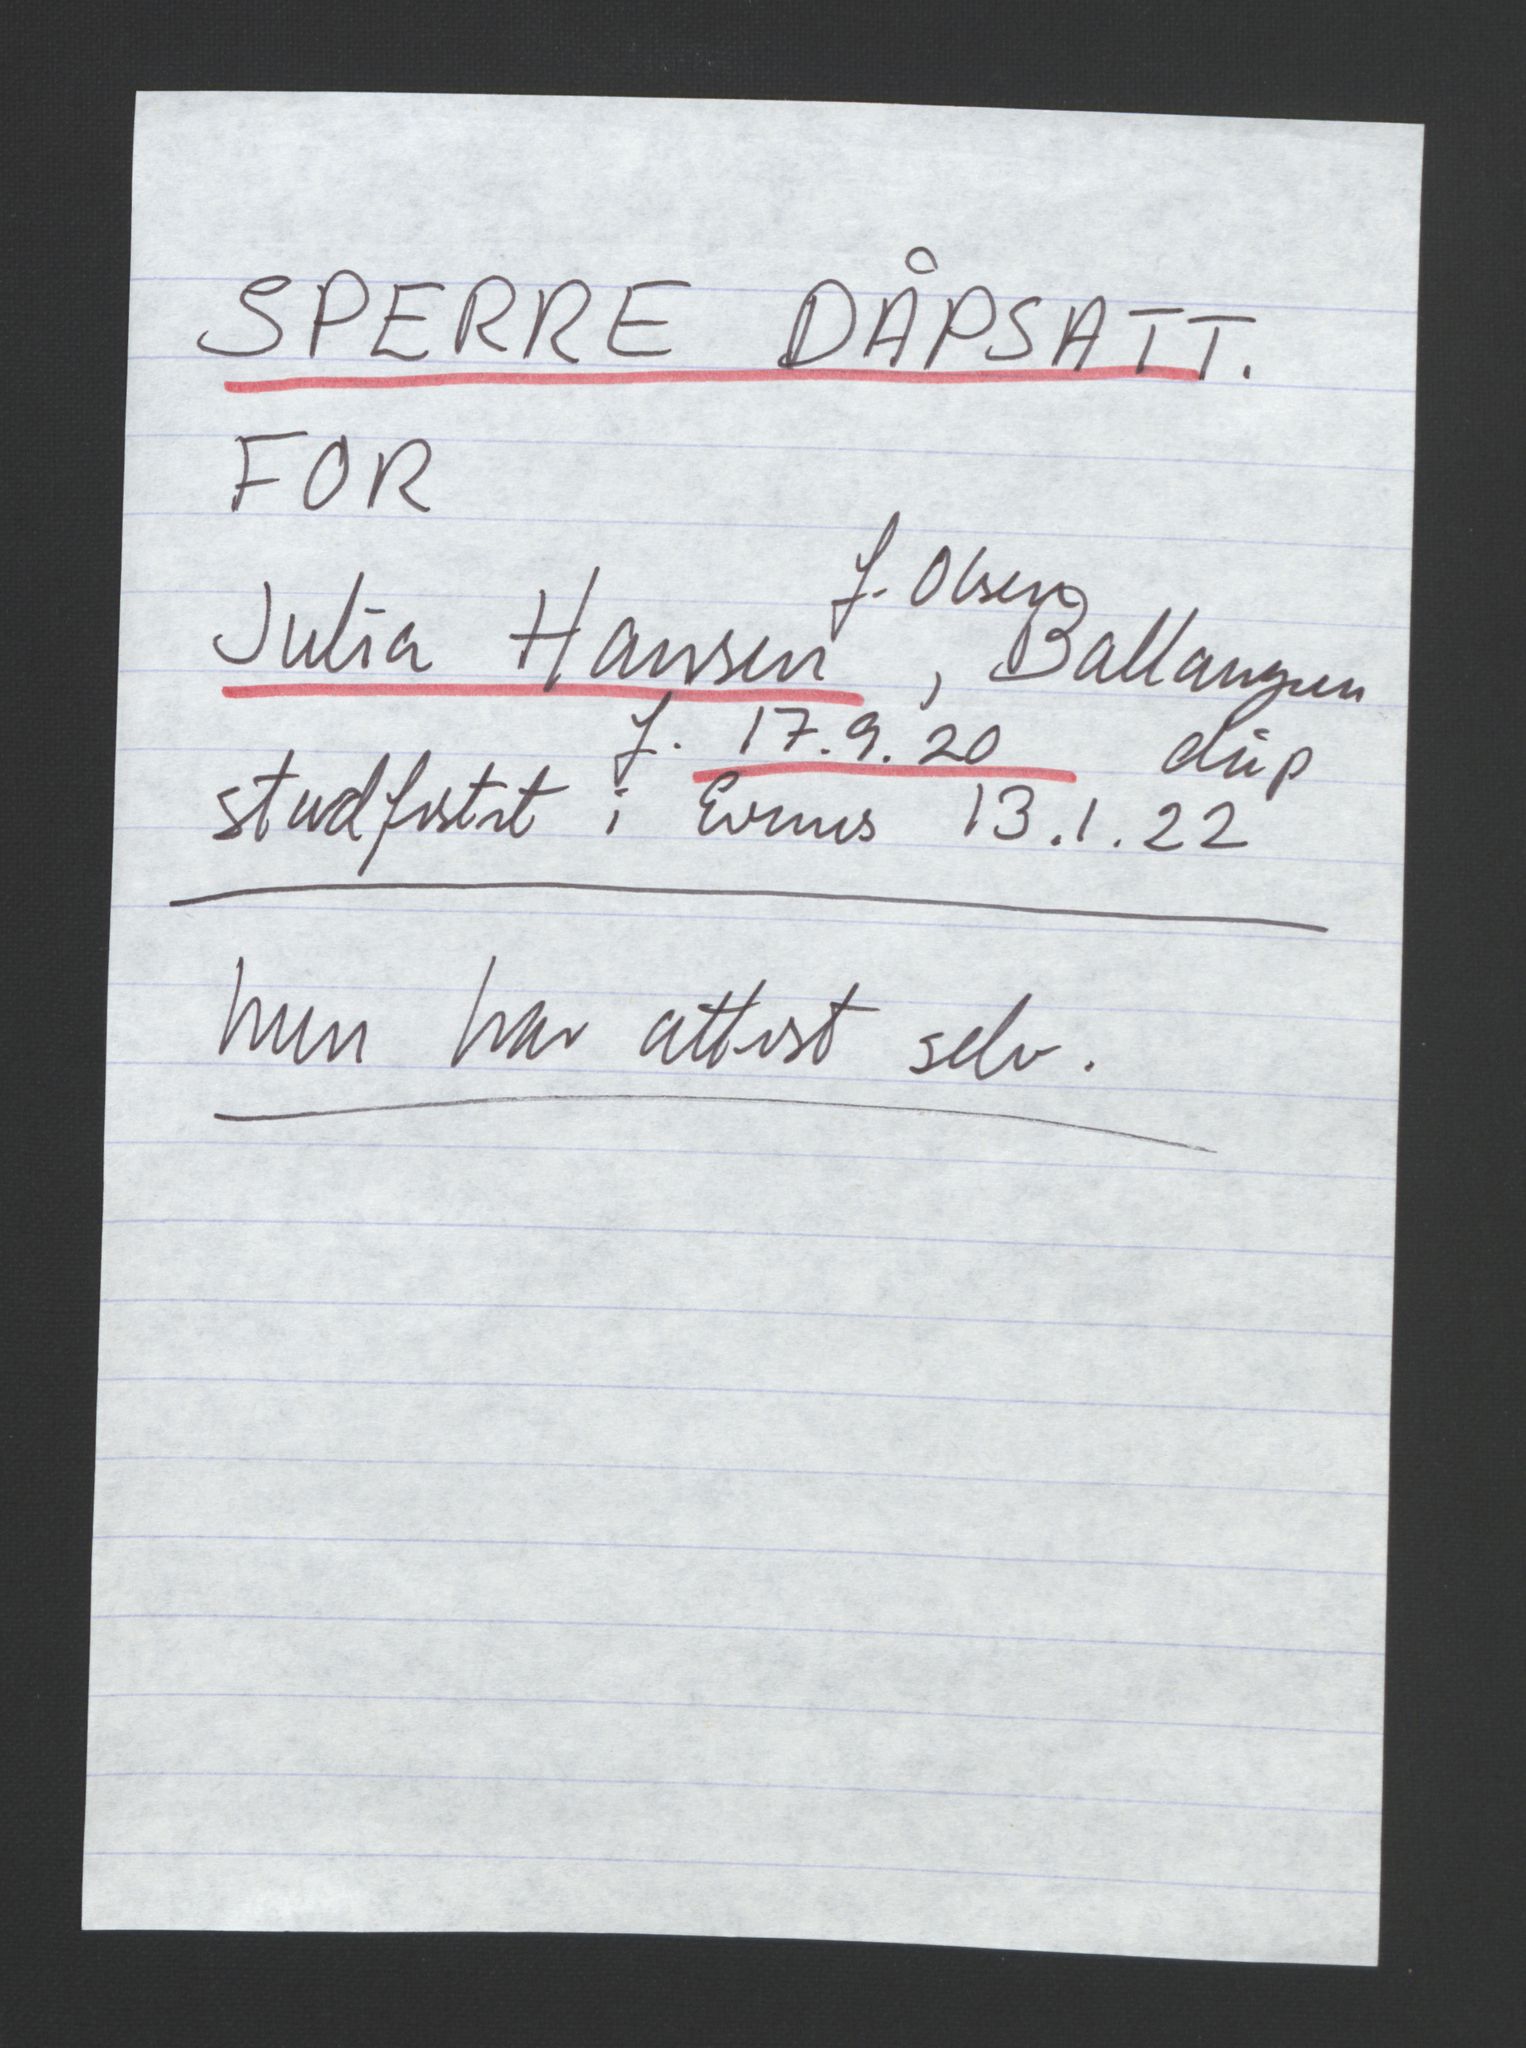 SPERRE DÅPSATT.
FOR
f. Olsen
Julia Hansen, Ballangen
f. 17.9.20 dåp
stadfestet i Evenes 13.1.22
hun har attest selv.